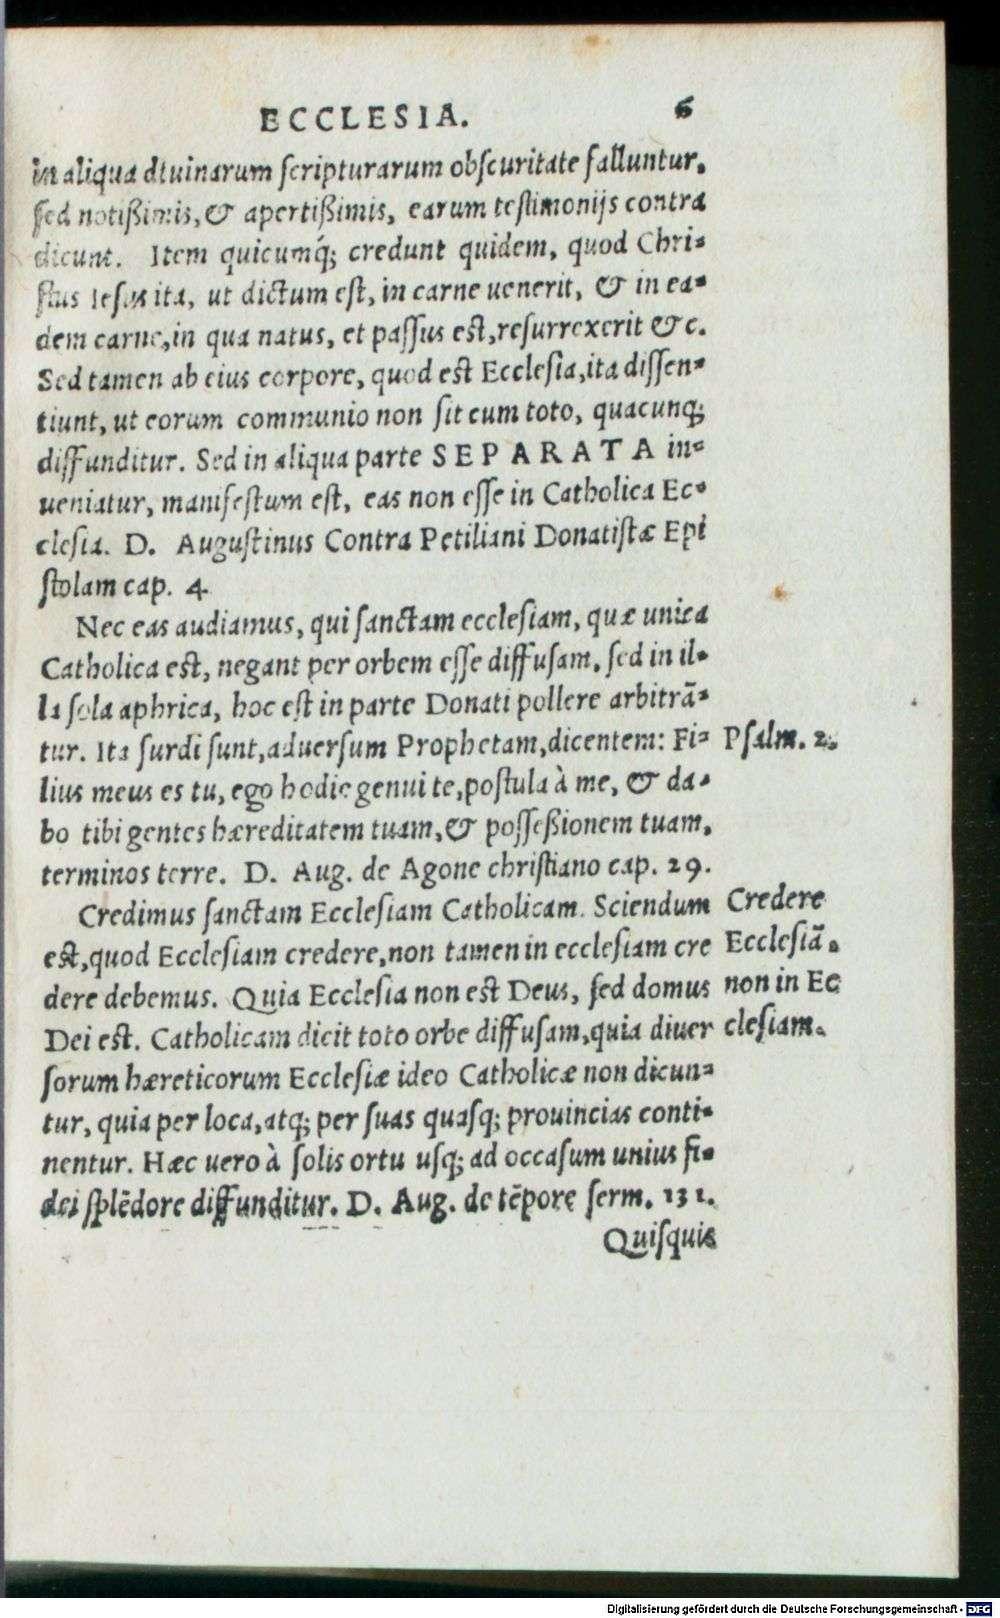 ECCLESIA. 6
in aliqua diuinarum scripturarum obscuritate falluntur.
sed notißimis, & apertißimis, earum testimonijs contra
dicunt. Item quicumq́; credunt quidem, quod Chri-
stus Iesus ita, ut dictum est, in carne uenerit, & in ea-
dem carne, in qua natus, et passus est, resurrexerit &c.
Sed tamen ab eius corpore, quod est Ecclesia, ita dissen-
tiunt, ut eorum communio non sit cum toto, quacunq;
diffunditur. Sed in aliqua parte SEPARATA in-
ueniatur, manifestum est, eas non esse in Catholica Ec-
clesia. D. Augustinus Contra Petiliani Donatistæ Epi
stolam cap. 4.
Nec eas audiamus, qui sanctam ecclesiam, quæ unica
Catholica est, negant per orbem esse diffusam, sed in il-
la sola aphrica, hoc est in parte Donati pollere arbitrā-
tur. Ita surdi sunt, aduersum Prophetam, dicentem: Fi- Psalm. 2.
lius meus es tu, ego hodie genui te, postula à me, & da-
bo tibi gentes hæreditatem tuam, & possessionem tuam,
terminos terre. D. Aug. de Agone christiano cap. 29.
Credimus sanctam Ecclesiam Catholicam. Sciendum Credere
est, quod Ecclesiam credere, non tamen in ecclesiam cre Ecclesiā.
dere debemus. Quia Ecclesia non est Deus, sed domus non in Ec
Dei est. Catholicam dicit toto orbe diffusam, quia diuer clesiam.
sorum hæreticorum Ecclesiæ ideo Catholicæ non dicun-
tur, quia per loca, atq; per suas quasq; prouincias conti-
nentur. Hæc uero à solis ortu usq; ad occasum unius fi-
dei splēdore diffunditur. D. Aug. de tēpore serm. 131.
Quisquis
Digitalisierung gefördert durch die Deutsche Forschungsgemeinschaft - DFG